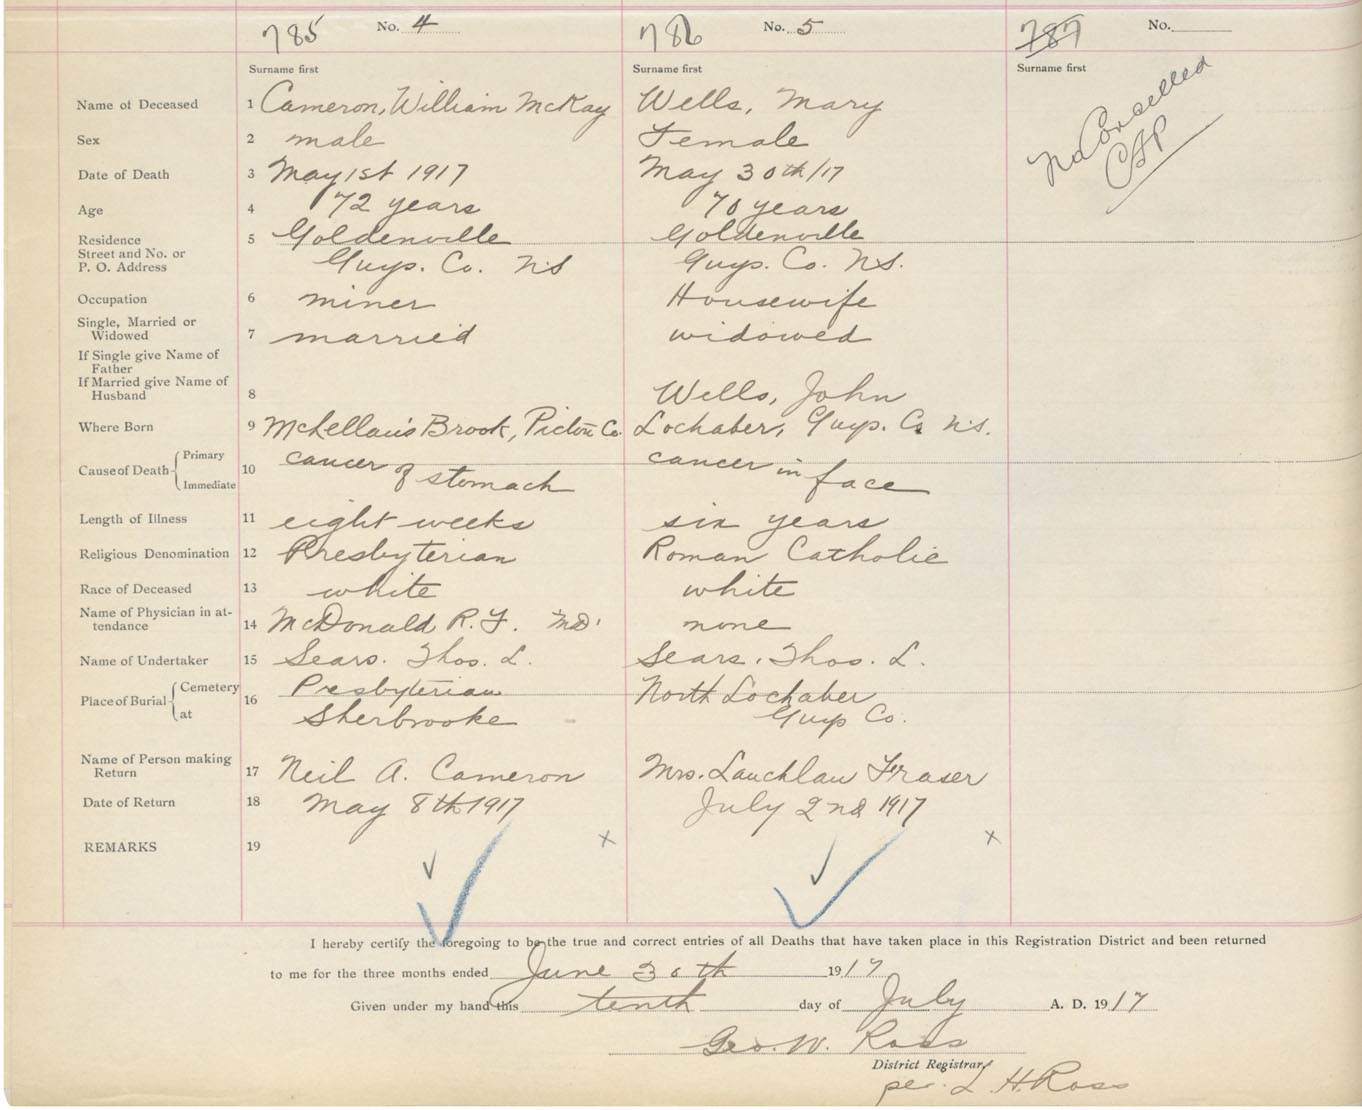 785 No. 4 786 No. 5 787 No.
Surname first Surname first Surname first
Name of Deceased 1 Cameron, William McKay Wells, Mary
No Cancelled
CAP
Sex 2 male Female
Date of Death 3 May 1st 1917 May 30th/17
Age 4 72 years 70 years
Residence 5 Goldenville Goldenville
Street and No. or
P. O. Address Guys. Co. NS Guys. Co. NS.
Occupation 6 miner Housewife
Single, Married or
Widowed 7 married widowed
If Single give Name of
Father
If Married give Name of
Husband 8 Wells, John
Where Born 9 McLellan's Brook, Pictou Co. Lochaber, Guys. Co N.S.
Cause of Death Primary 10 cancer of stomach cancer in face
Immediate
Length of Illness 11 eight weeks six years
Religious Denomination 12 Presbyterian Roman Catholic
Race of Deceased 13 white white
Name of Physician in at-
tendance 14 McDonald R. F. MD. none
Name of Undertaker 15 Sears. Thos. L. Sears. Thos. L.
Place of Burial Cemetery 16 Presbyterian North Lochaber
at Sherbrooke Guys Co.
Name of Person making
Return 17 Neil A. Cameron Mrs. Lauchlan Fraser
Date of Return 18 May 8th 1917 July 2nd 1917
REMARKS 19 x x
I hereby certify the foregoing to be the true and correct entries of all Deaths that have taken place in this Registration District and been returned
to me for the three months ended June 30th 1917
Given under my hand this tenth day of July A. D. 1917
Geo. W. Ross
District Registrar
per. L. H. Ross